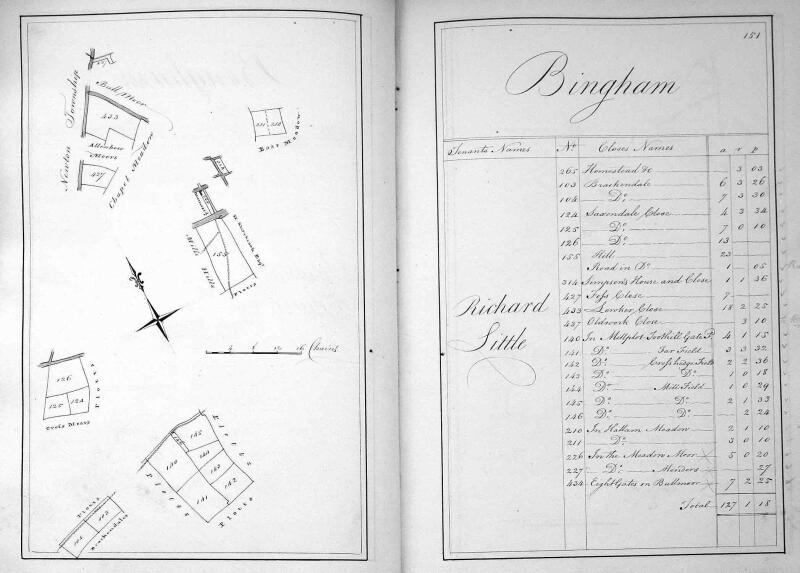 Newton Township
Ball Moor
433
Allenbow
Moors
427
Chapel Meadow
211 210
East Meadow
155
Mill Hills
Plotts
4 8 12 16 Chains
126
125 124
Plotts
146 145
140 144
143
141 142
Plotts
Plotts
Plotts
Plotts
104 103
Brackendales
151
Bingham
Tenants Names No. Closes Names a r p
Richard
Little
265 Homestead &c 3 03
103 Brackendale 6 3 26
104 Do. 7 3 30
124 Saxendale Close 4 3 34
125 Do. 7 0 10
126 Do. 13
155 Hill 23
Road in Do. 1 05
314 Simpson's House and Close 1 1 36
427 Foss Close 7
433 Lowker Close 18 2 25
437 Oldwork Close 3 10
140 In Millplot Toothill Gate P. 4 1 15
141 Do. Far Field 3 3 32
142 Do. Crosshedge Field 2 2 36
143 Do. Do. 1 0 18
144 Do. Mill Field 1 0 29
145 Do. Do. 2 1 33
146 Do. Do. 2 24
210 In Hallam Meadow 2 1 10
211 Do. 3 0 10
226 In the Meadow Moor 5 0 20
227 Do. Menders 27
434 Eight Gates on Ballmoor 7 2 25
Total 127 1 18